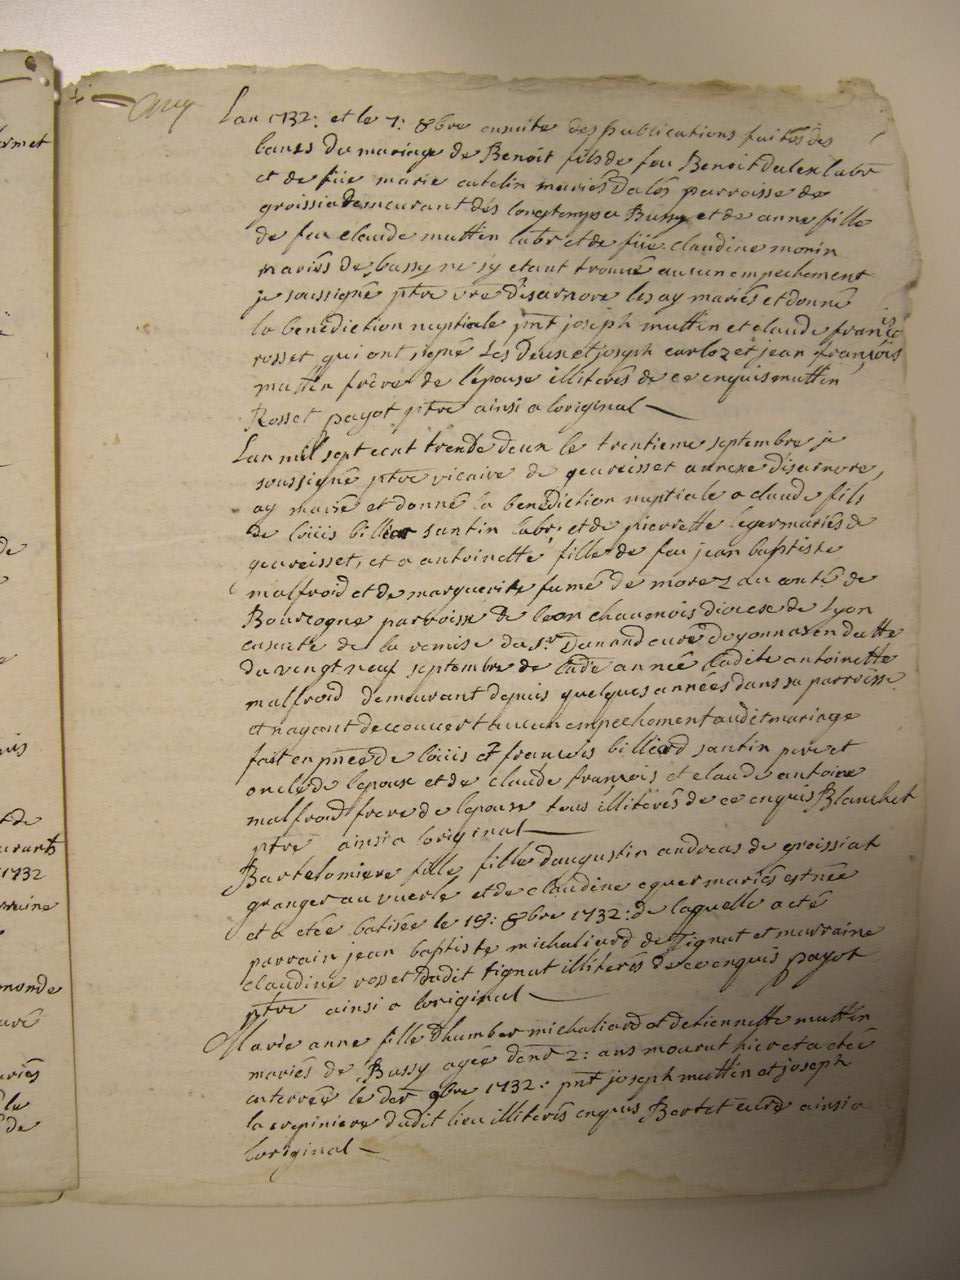 Lan 1732: et le 7: 8bre ensuite des publications faittes des
bancs du mariage de Benoit fils de feu Benoit Dalex labr
et de füe marie catelin mariés Dalés parroisse de
groissia demeurant dés longtemps a Bussy et de anne fille
de feu claude muttin labr et de füe claudine monin
mariés de bussy ne sy etant trouvé aucun empechement
je soussigné ptre vre disarnore les ay mariés et donné
la benediction nuptiale pnt joseph muttin et claude françois
rosset qui ont signé Les Deux et joseph carloz et jean françois
muttin frère de lépouse illiterés de ce enquis muttin
Rosset payot ptre ainsi a loriginal
Lan mil sept cent trende deux le trentieme septembre je
soussigné ptre vicaire de geureisset annexe disarnore,
ay marié et donné la benediction nuptiale a claude fils
de loüis billiar santin labr et de pierrette leger mariés de
geureisset, et a antoinette fille de feu jean baptiste
malfroid et de marguerite fumé de morez du conté de
Bourgogne parroisse de leon chaumois diocese de Lyon
ensuite de la remise du Sr Dunand curé doyonnax en datte
du vingt neuf septembre de lade année ladite antoinette
malfroid demeurant depuis quelques années dans sa parroisse
et nayant decouvert aucun empechement audit mariage
fait en pnce de loüis et francois billiard santin pere et
oncle de lepoux et de claude françois et claude antoine
malfroid frere de lepouse tous illiterés de ce enquis Blanchet
ptre ainsi a loriginal
Bartelomiere fille fille daugustin andreas de groissiat
granger au vuerle et de claudine eguer mariés est née
et a etée batisée le 19: 8bre 1732: de laquelle a eté
parrain jean baptiste michaliard de Tignat et marraine
claudine rosset dudit tignat illiterés de ce enquis payot
ptre ainsi a loriginal
Marie anne fille dhumber michaliard et detiennette muttin
mariés de Bussy agée denv 2: ans mourut hier et a etée
enterrée le der 9bre 1732: pnt joseph muttin et joseph
la crepiniere dudit lieu illiterés enquis Bertet curé ainsi a
loriginal